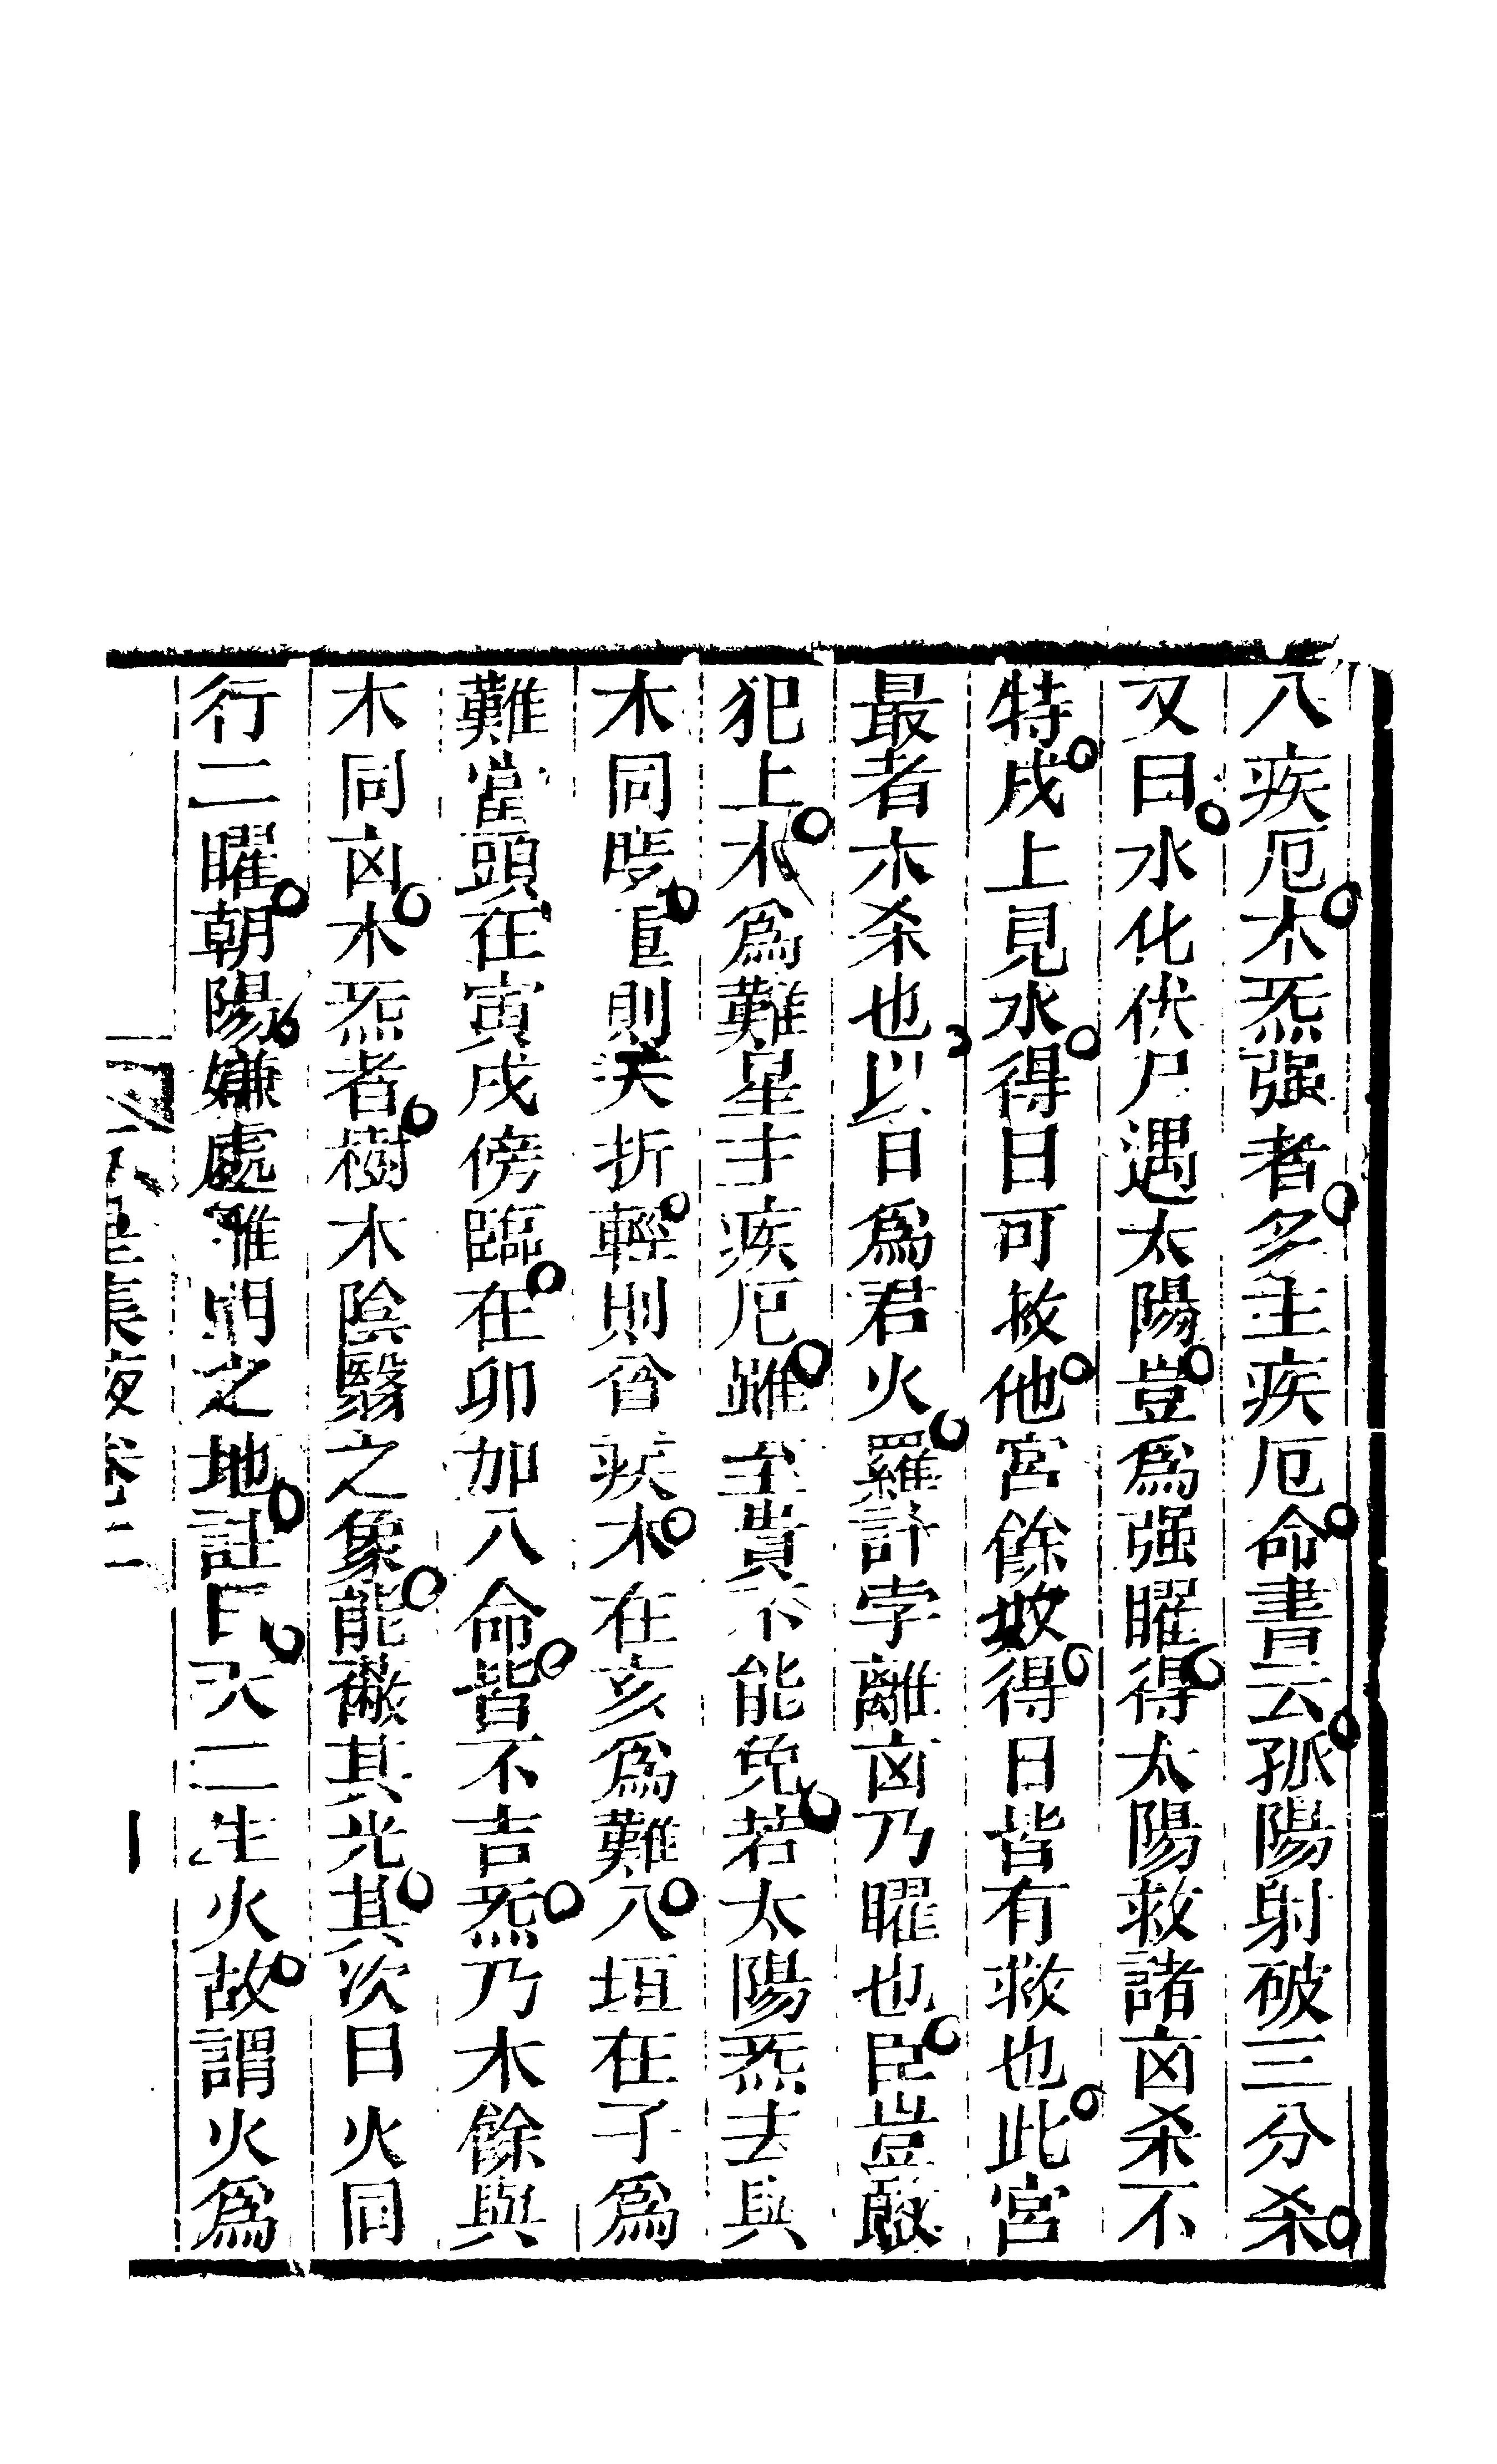 八疾厄木炁强者多主疾厄命書云孤陽射破三分杀
又曰水化伏尸遇太陽豈爲强曜得太陽救諸㐫杀不
特戌上見水得日可救他宮餘奴得日皆有救也此宮
最者木杀也以日爲君火羅計孛離㐫乃曜也臣豈敢
犯上木爲難星主疾厄雖至貴不能免若太陽炁去與
木同則夭折輕則眚疾木在亥爲難八垣在子爲
難當頭在寅戌傍臨在卯加八命皆不吉炁乃木餘與
木同㐫木炁者樹木陰翳之象能蔽其光其次日火同
行二曜朝陽嫌處之地註曰二生火故謂火爲
星集腋卷二